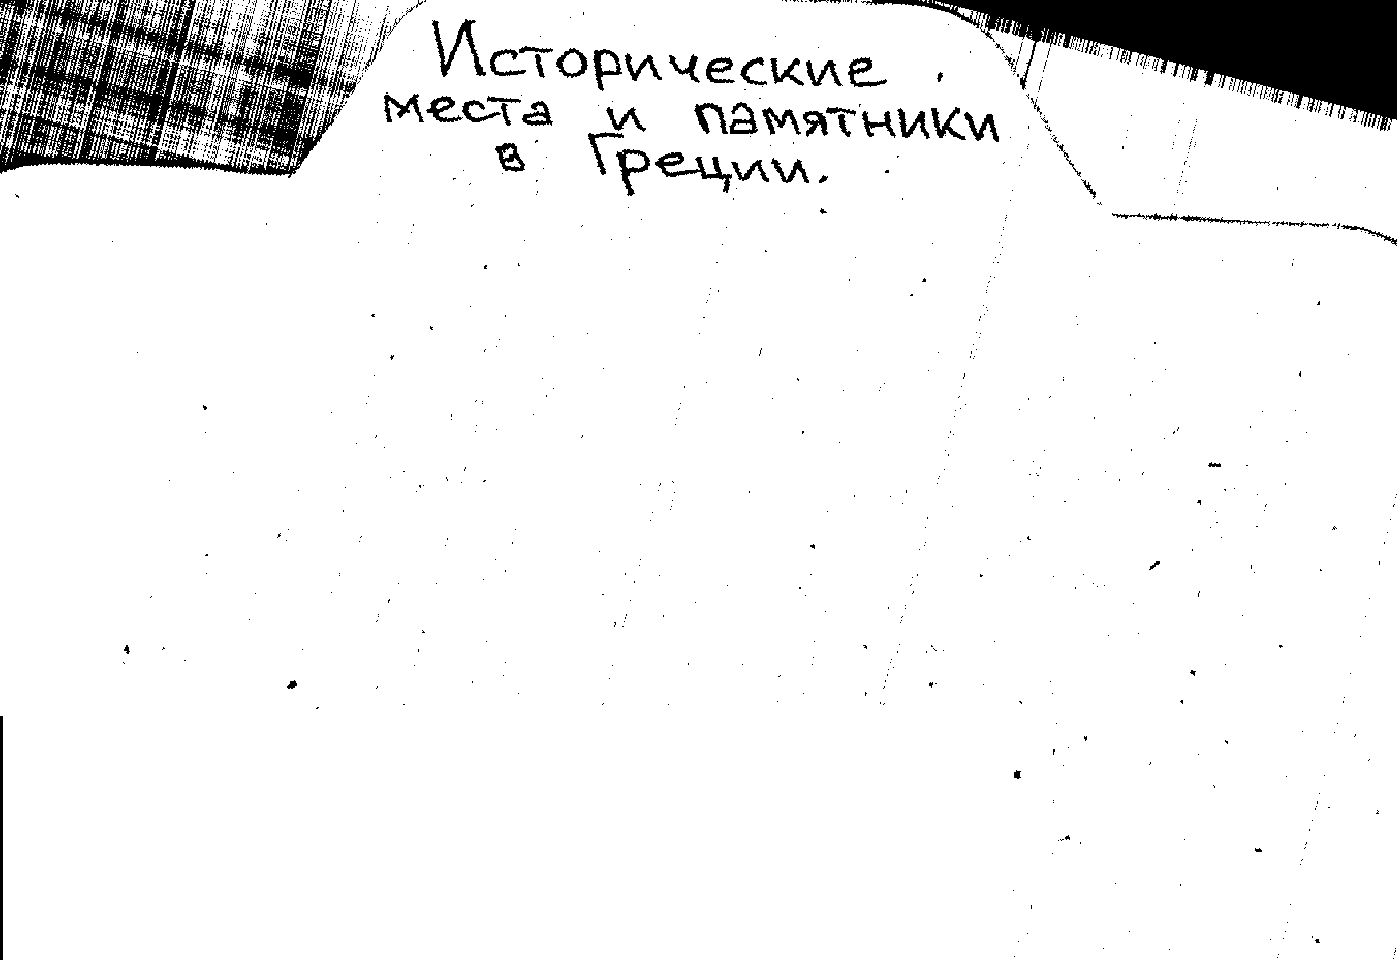 Исторические
места и памятники
в Греции.